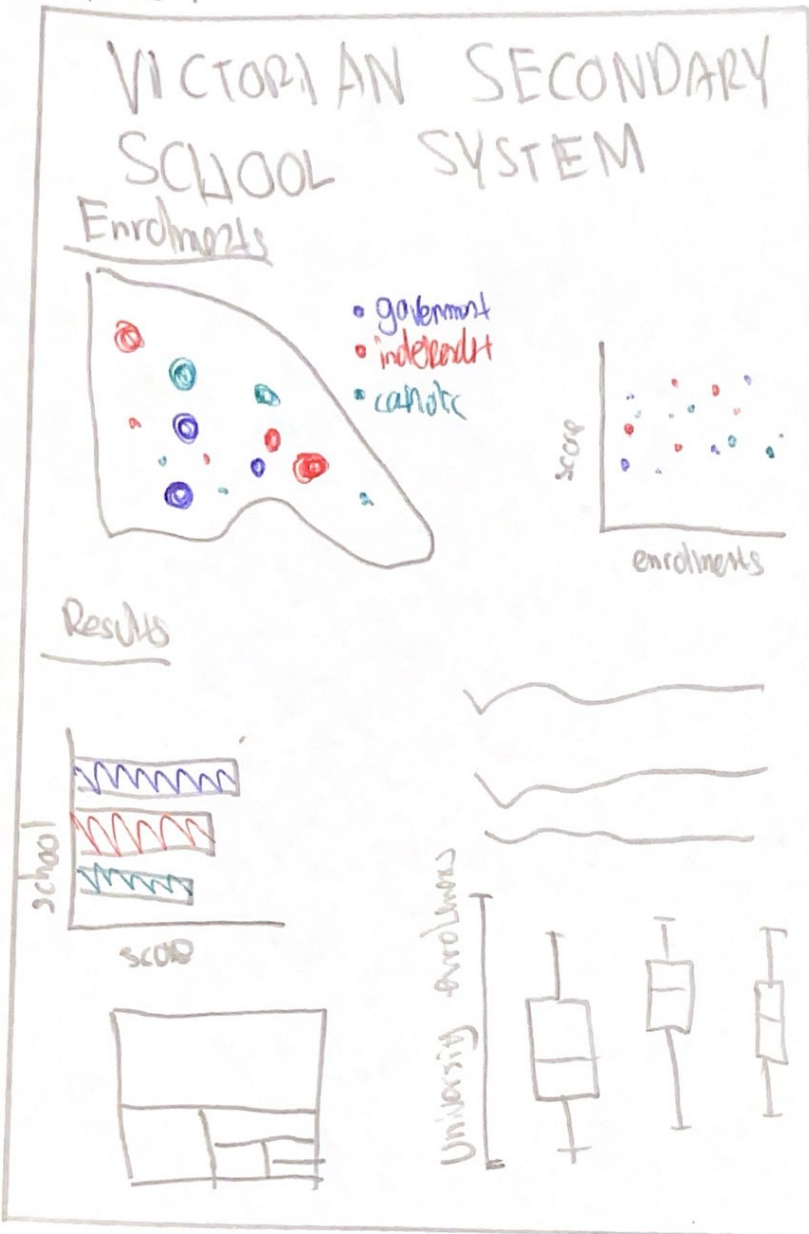 VICTORIAN SECONDARY
SCHOOL SYSTEM
Enrolments
government
independent
catholic
score
enrolments
Results
school
score
University enrolments